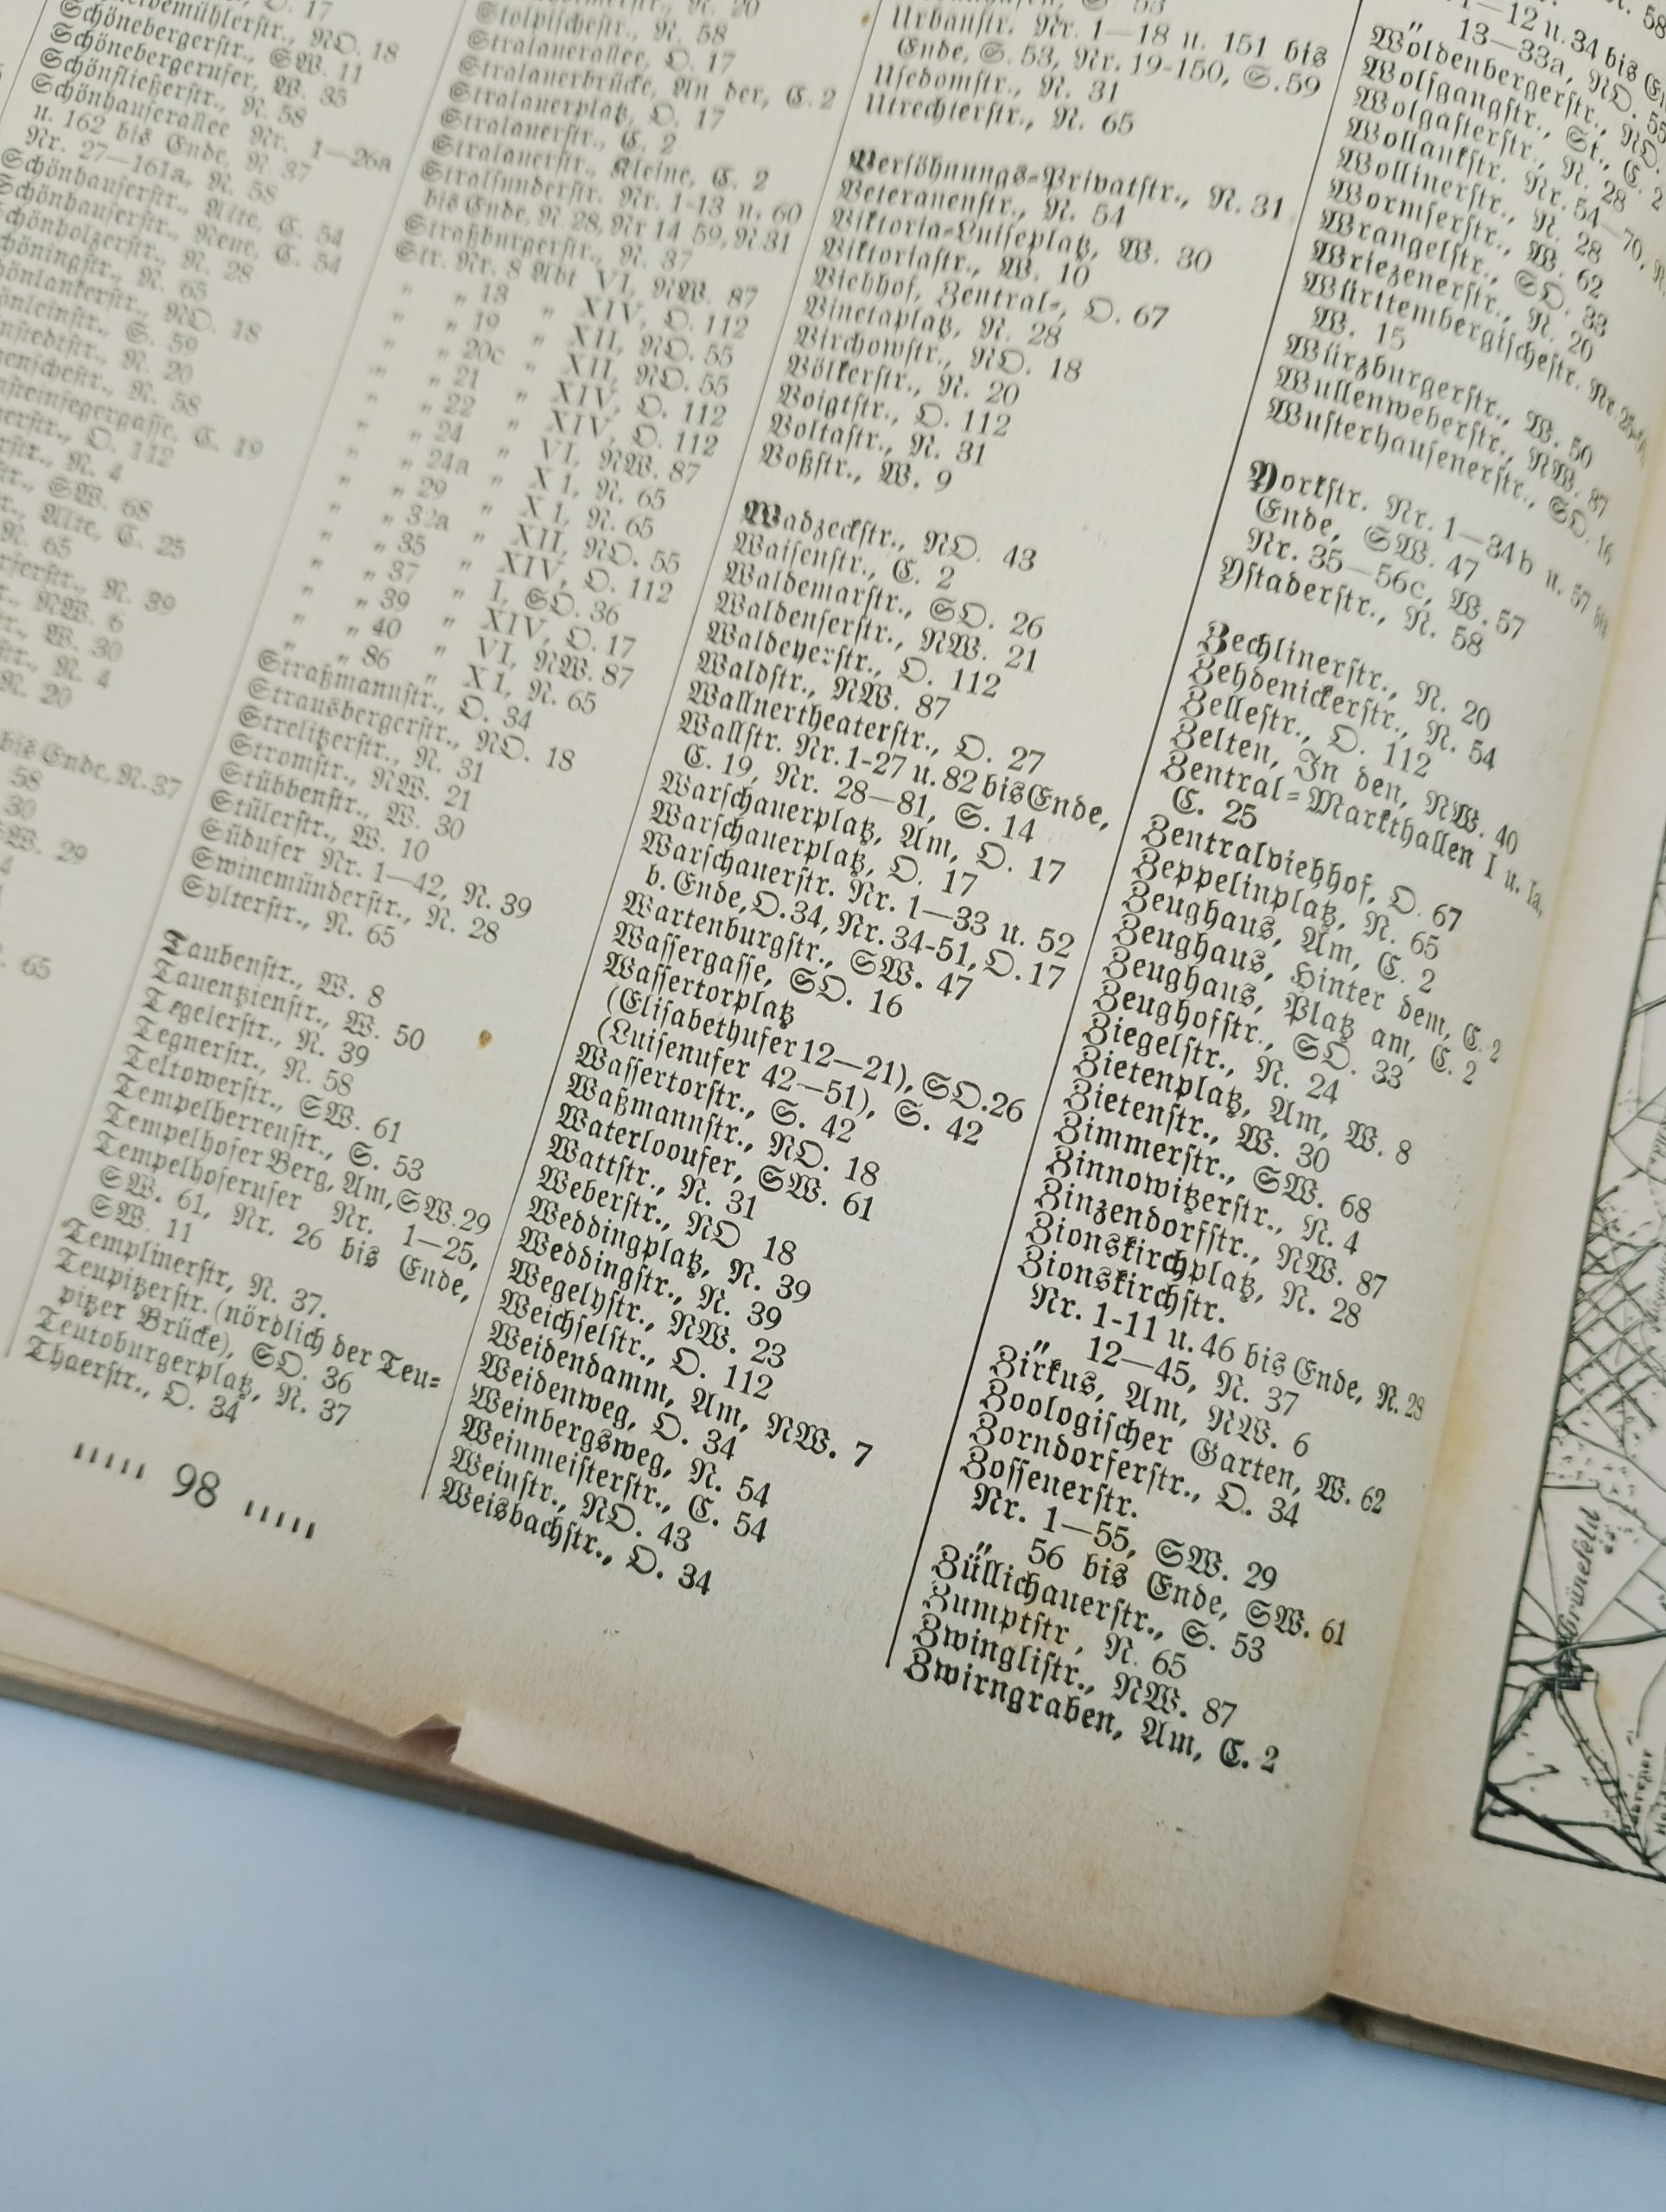 17
Schönebergerstr., SW. 11
Schönebergerufer, W. 35
Schönfließerstr., N. 58
Schönhauserallee Nr. 1—26a
u. 162 bis Ende, N. 37
Nr. 27—161a, N. 58
Schönhauserstr., Alte, C. 54
Schönhauserstr., Neue, C. 54
N. 28
N. 65
NO. 18
S. 59
N. 20
N. 58
C. 19
O. 112
N. 4
SW. 68
Alte, C. 25
N. 65
N. 39
NW. 6
W. 30
N. 4
N. 20
bis Ende, N. 37
58
30
SW. 29
4
65
Stolpischestr., N. 58
Stralauerallee, O. 17
Stralauerbrücke, An der, C. 2
Stralauerplatz, O. 17
Stralauerstr., C. 2
Stralauerstr., Kleine, C. 2
Stralsunderstr. Nr. 1-13 u. 60
bis Ende, N. 28, Nr 14 59, N. 31
Straßburgerstr., N. 37
Str. Nr. 8 Abt VI, NW. 87
„ „ 13 „ XIV, O. 112
„ „ 19 „ XII, NO. 55
„ „ 20c „ XII, NO. 55
„ „ 21 „ XIV, O. 112
„ „ 22 „ XIV, O. 112
„ „ 24 „ VI, NW. 87
„ „ 24a „ X 1, N. 65
„ „ 29 „ X 1, N. 65
„ „ 32a „ XII, NO. 55
„ „ 35 „ XIV, O. 112
„ „ 37 „ I, SO. 36
„ „ 39 „ XIV, O. 17
„ „ 40 „ VI, NW. 87
„ „ 86 „ X 1, N. 65
Straßmannstr., O. 34
Strausbergerstr., NO. 18
Strelitzerstr., N. 31
Stromstr., NW. 21
Stübbenstr., W. 30
Stülerstr., W. 10
Südufer Nr. 1—42, N. 39
Swinemünderstr., N. 28
Sylterstr., N. 65
Taubenstr., W. 8
Tauentzienstr., W. 50
Tegelerstr., N. 39
Tegnerstr., N. 58
Teltowerstr., SW. 61
Tempelherrenstr., S. 53
Tempelhofer Berg, Am, SW. 29
Tempelhoferufer Nr. 1—25,
SW. 61, Nr. 26 bis Ende,
SW. 11
Templinerstr, N. 37.
Teupitzerstr. (nördlich der Teu-
pitzer Brücke), SO. 36
Teutoburgerplatz, N. 37
Thaerstr., O. 34
98
Urbanstr. Nr. 1—18 u. 151 bis
Ende, S. 53, Nr. 19-150, S. 59
Usedomstr., N. 31
Utrechterstr., N. 65
Versöhnungs-Privatstr., N. 31
Veteranenstr., N. 54
Viktoria-Luiseplatz, W. 30
Viktoriastr., W. 10
Viehhof, Zentral-, O. 67
Vinetaplatz, N. 28
Virchowstr., NO. 18
Völkerstr., N. 20
Voigtstr., O. 112
Voltastr., N. 31
Voßstr., W. 9
Wadzeckstr., NO. 43
Waisenstr., C. 2
Waldemarstr., SO. 26
Waldenserstr., NW. 21
Waldeyerstr., O. 112
Waldstr., NW. 87
Wallnertheaterstr., O. 27
Wallstr. Nr. 1-27 u. 82 bis Ende,
C. 19, Nr. 28—81, S. 14
Warschauerplatz, Am, O. 17
Warschauerplatz, O. 17
Warschauerstr. Nr. 1—33 u. 52
b. Ende, O. 34, Nr. 34-51, O. 17
Wartenburgstr., SW. 47
Wassergasse, SO. 16
Wassertorplatz
(Elisabethufer 12—21), SO. 26
(Luisenufer 42—51), S. 42
Wassertorstr., S. 42
Waßmannstr., NO. 18
Waterlooufer, SW. 61
Wattstr., N. 31
Weberstr., NO 18
Weddingplatz, N. 39
Weddingstr., N. 39
Wegelystr., NW. 23
Weichselstr., O. 112
Weidendamm, Am, NW. 7
Weidenweg, O. 34
Weinbergsweg, N. 54
Weinmeisterstr., C. 54
Weinstr., NO. 43
Weisbachstr., O. 34
1—12 u. 34 bis
13—33a, NO. 55
Woldenbergerstr., NO.
Wolfgangstr., St., C. 2
Wolgasterstr., N. 28
Wollankstr. Nr. 54—70, N.
Wollinerstr., N. 28
Wormserstr., W. 62
Wrangelstr., SO. 33
Wriezenerstr., N. 20
Württembergischestr. Nr.
W. 15
Würzburgerstr., W. 50
Wullenweberstr., NW. 87
Wusterhausenerstr., SO. 16
Yorkstr. Nr. 1—34b u. 57
Ende, SW. 47
Nr. 35—56c, W. 57
Ystaderstr., N. 58
Zechlinerstr., N. 20
Zehdenickerstr., N. 54
Zellestr., O. 112
Zelten, In den, NW. 40
Zentral-Markthallen I u. Ia,
C. 25
Zentralviehhof, O. 67
Zeppelinplatz, N. 65
Zeughaus, Am, C. 2
Zeughaus, Hinter dem, C. 2
Zeughaus, Platz am, C. 2
Zeughofstr., SO. 33
Ziegelstr., N. 24
Zietenplatz, Am, W. 8
Zietenstr., W. 30
Zimmerstr., SW. 68
Zinnowitzerstr., N. 4
Zinzendorfstr., NW. 87
Zionskirchplatz, N. 28
Zionskirchstr.
Nr. 1-11 u. 46 bis Ende, N. 28
„ 12—45, N. 37
Zirkus, Am, NW. 6
Zoologischer Garten, W. 62
Zorndorferstr., O. 34
Zossenerstr.
Nr. 1—55, SW. 29
„ 56 bis Ende, SW. 61
Züllichauerstr., S. 53
Zumptstr, N. 65
Zwinglistr., NW. 87
Zwirngraben, Am, C. 2
Grünefeld